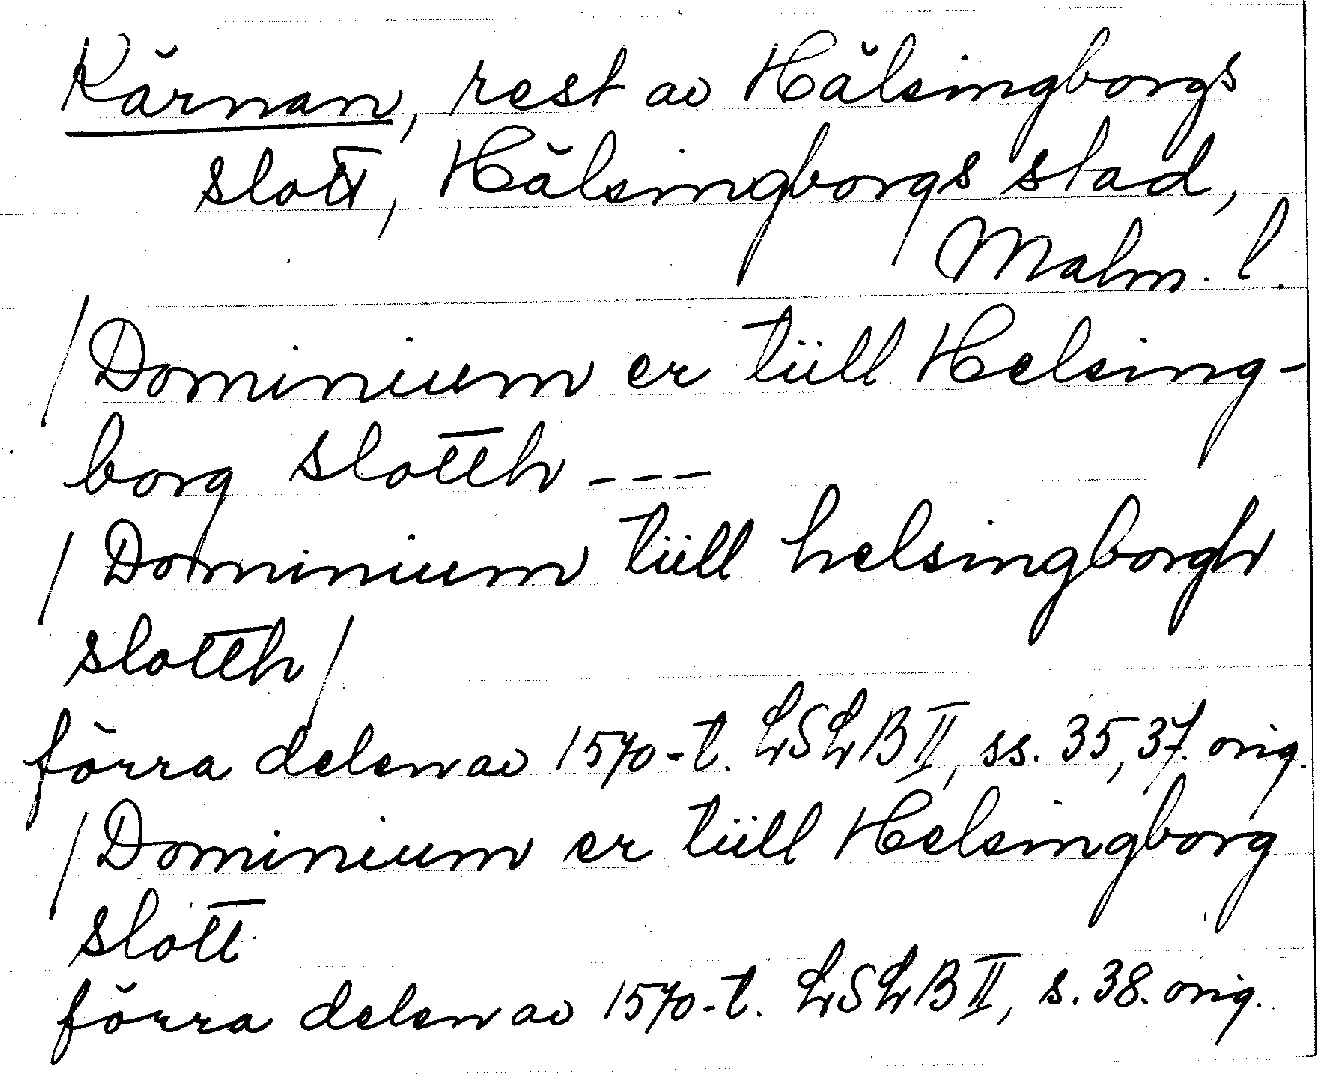 Kärnan, rest av Hälsingborgs
slott, Hälsingborgs stad,
Malm. l.
/Dominium er tüll Helsing-
borg slotth ---
/Dominium tüll helsingborgh
slotth/
förra delen av 1570-t. LSLB II, ss. 35, 37. orig.
/Dominium er tüll Helsingborg
slott
förra delen av 1570-t. LSLB II, s. 38. orig.